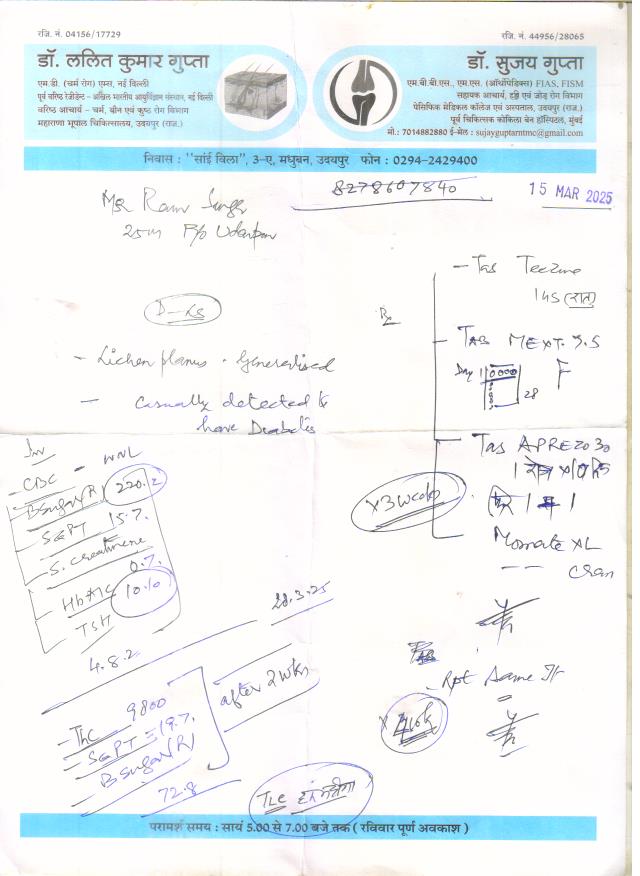 रजि. नं. 04156/17729
रजि. नं. 44956/28065
डॉ. ललित कुमार गुप्ता
एम.डी. (चर्म रोग) एम्स, नई दिल्ली
पूर्व वरिष्ठ रेजीडेन्ट - अखिल भारतीय आयुर्विज्ञान संस्थान, नई दिल्ली
वरिष्ठ आचार्य - चर्म, यौन एवं कुष्ठ रोग विभाग
महाराणा भूपाल चिकित्सालय, उदयपुर (राज.)
डॉ. सुजय गुप्ता
एम.बी.बी.एस., एम.एस. (ऑर्थोपेडिक्स) FIAS, FISM
सहायक आचार्य, हड्डी एवं जोड़ रोग विभाग
पेसिफिक मेडिकल कॉलेज एवं अस्पताल, उदयपुर (राज.)
पूर्व चिकित्सक कोकिला बेन हॉस्पिटल, मुंबई
मो.: 7014882880 ई-मेल : sujayguptarntmc@gmail.com
निवास : "सांई विला", 3-ए, मधुबन, उदयपुर फोन : 0294-2429400
8278607840
15 MAR 2025
Mr Ram Singh
25m R/o Udaipur
- Lichen planus - Generalised
- Casually detected to
have Diabetes
Rx
- Tab Teczine
- TAB MEXT 7.5
Day 1
28
Tab APREZO 30
x 3 weeks
Momate XL
Inv
- CBC - WNL
- BSugar (R) 220.2
- SGPT 15.7
- S. Creatinine
0.7
- HbA1C 10.10
- TSH
4.8.2
28.3.25
- Rpt Same
after 2 wks
- TLC 9800
- SGPT = 19.7
- BSugar (R)
72.8
TLC
परामर्श समय : सायं 5.00 से 7.00 बजे तक ( रविवार पूर्ण अवकाश )